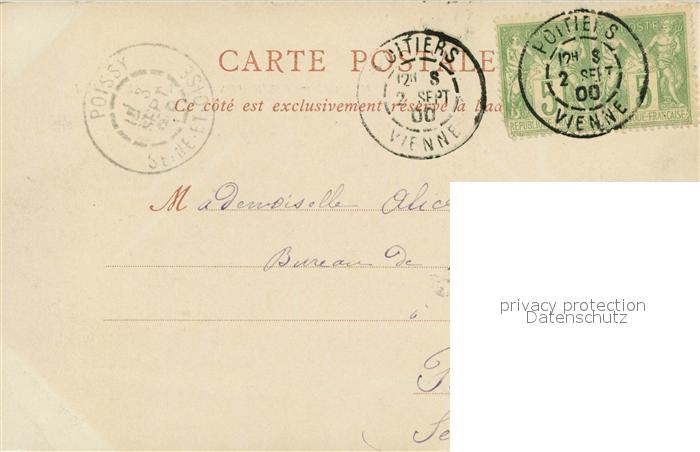 CARTE POSTALE
Ce côté est exclusivement réservé à l'ad
POITIERS
12H S
2 SEPT
00
VIENNE
POITIERS
12H S
2 SEPT
00
VIENNE
POSTE
5
5
RÉPUBLI
QUE-FRANÇAISE
POISSY
3
SEPT
SEINE-ET-OISE
Mademoiselle Alic
Bureau de
à
P
Se
privacy protection
Datenschutz